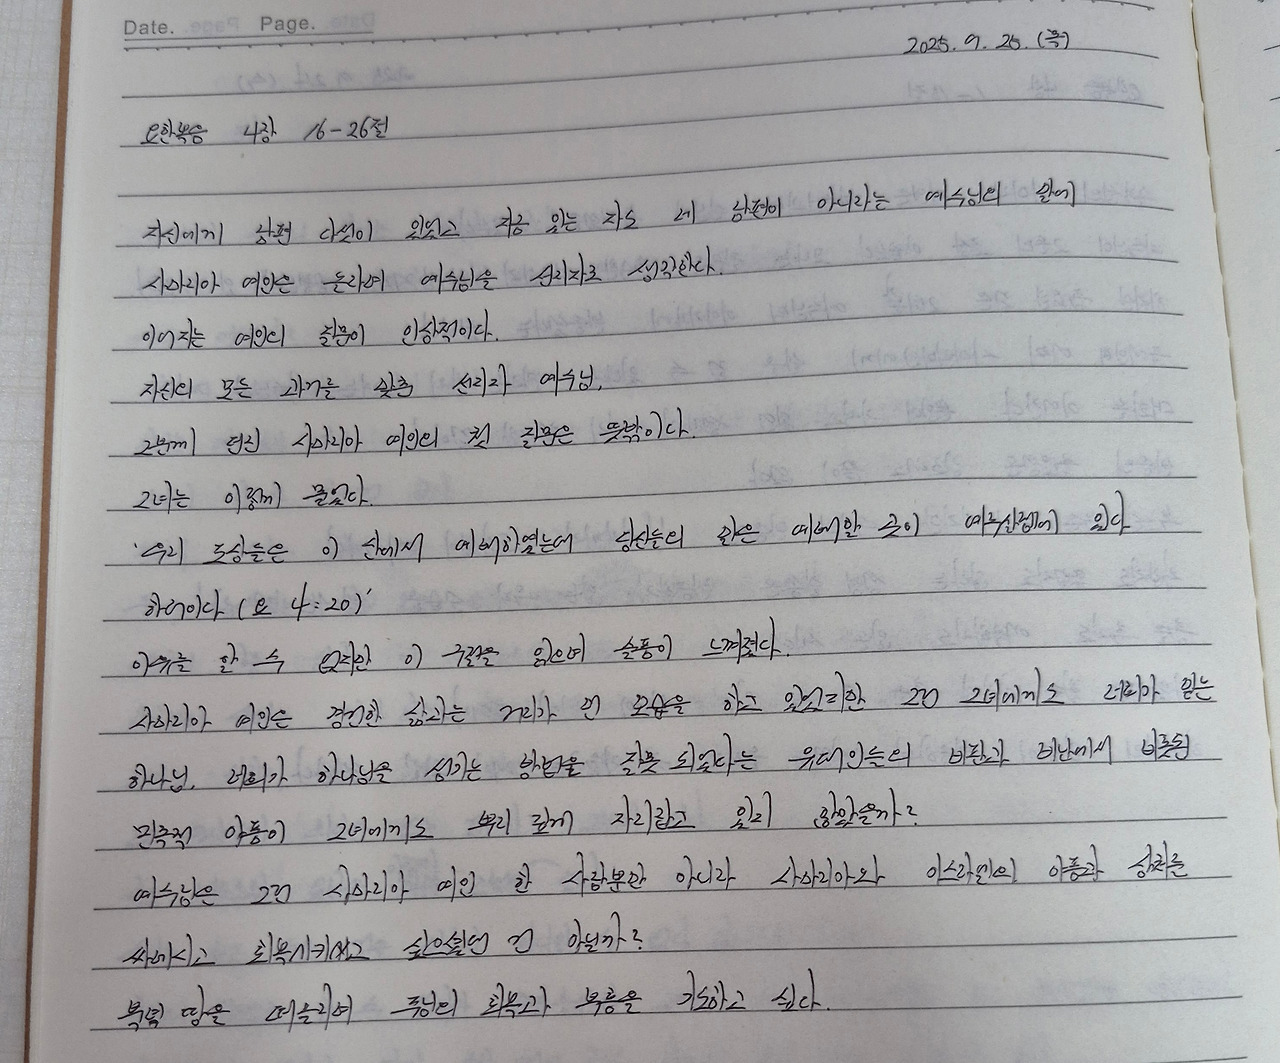 Date. Page.
2025. 9. 25. (목)
요한복음 4장 16-26절
자신에게 남편 다섯이 있었고 지금 있는 자도 네 남편이 아니라는 예수님의 말에
사마리아 여인은 놀라며 예수님을 선지자로 생각한다.
이어지는 여인의 질문이 인상적이다.
자신의 모든 과거를 맞춘 선지자 예수님.
그분께 던진 사마리아 여인의 첫 질문은 뜻밖이다.
그녀는 이렇게 물었다.
'우리 조상들은 이 산에서 예배하였는데 당신들의 말은 예배할 곳이 예루살렘에 있다
하더이다 (요 4:20)'
이유를 알 수 없지만 이 구절을 읽으며 슬픔이 느껴졌다.
사마리아 여인은 경건한 삶과는 거리가 먼 모습을 하고 있었지만 그런 그녀에게도 너희가 믿는
하나님, 너희가 하나님을 섬기는 방법은 잘못 되었다는 유대인들의 비판과 비난에서 비롯된
민족적 아픔이 그녀에게도 뿌리 깊게 자리잡고 있지 않았을까?
예수님은 그런 사마리아 여인 한 사람뿐만 아니라 사마리아와 이스라엘의 아픔과 상처를
싸매시고 회복시키시고 싶으셨던 건 아닐까?
북녘 땅을 떠올리며 주님의 회복과 부흥을 기도하고 싶다.